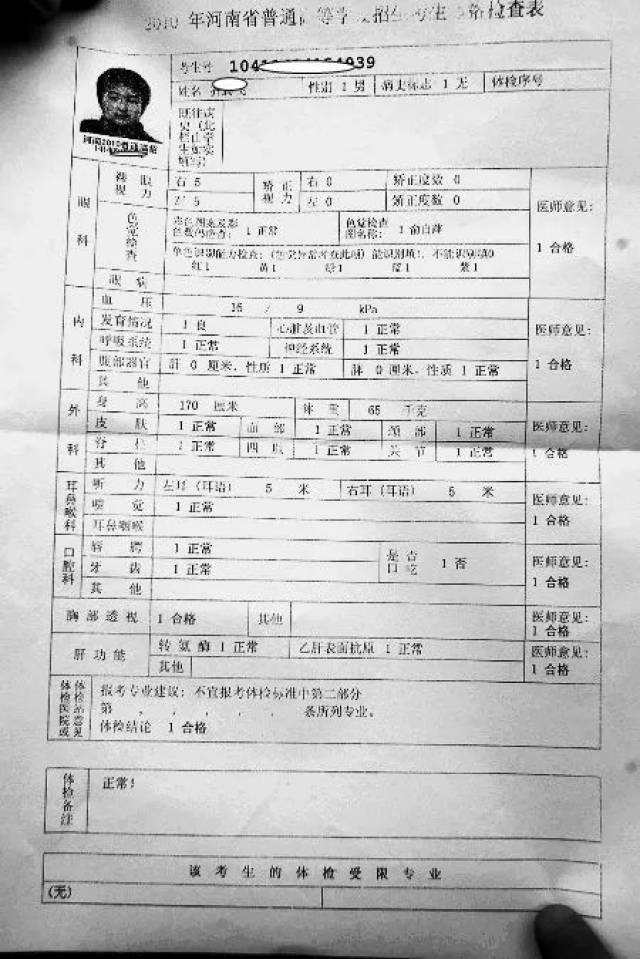 2010 年河南省普通 等学 招生考生 格检查表
考生号 104 039
姓名 性别 1 男 病史标志 1 无 体检序号
既往病史（此栏正考生如实填写）
河南2010普通高招
眼科 裸眼视力 右 5 矫正视力 右 0 矫正度数 0 医师意见：
左 5 左 0 矫正度数 0
色觉检查 彩色图案及彩色数码检查： 1 正常 色觉检查图名称： 1 俞自萍 1 合格
单色识别能力检查：（色觉异常者查此项）能识别填1，不能识别填0
红1 黄1 绿1 蓝1 紫1
眼病
内科 血压 15 / 9 kPa 医师意见：
发育情况 1 良 心脏及血管 1 正常
呼吸系统 1 正常 神经系统 1 正常 1 合格
腹部器官 肝 0 厘米，性质 1 正常 脾 0 厘米，性质 1 正常
其他
外科 身高 170 厘米 体重 65 千克 医师意见：
皮肤 1 正常 面部 1 正常 颈部 1 正常
脊柱 1 正常 四肢 1 正常 关节 1 正常 1 合格
其他
耳鼻喉科 听力 左耳（耳语） 5 米 右耳（耳语） 5 米 医师意见：
嗅觉 1 正常 1 合格
耳鼻咽喉
口腔科 唇腭 1 正常 是否口吃 1 否 医师意见：
牙齿 1 正常 1 合格
其他
胸部透视 1 合格 其他 医师意见：
1 合格
肝功能 转氨酶 1 正常 乙肝表面抗原 1 正常 医师意见：
其他 1 合格
体检医院或体检站意见 报考专业建议：不宜报考体检标准中第二部分
第 ， ， ， ， ， 条所列专业。
体检结论 1 合格
体检备注 正常！
该考生的体检受限专业
(无)